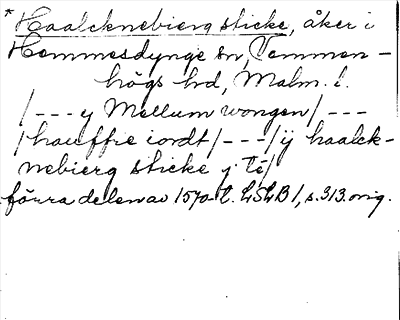 * Haalcknebierg sticke, åker i
Hemmesdynge sn, Vemmen-
högs hd, Malm. l.
/--- y Mellum wongen/, ---
/hauffre iordt/---/ij haalck-
nebierg sticke y Té/
förra delen av 1570-t. LSLB 1, s. 313. orig.